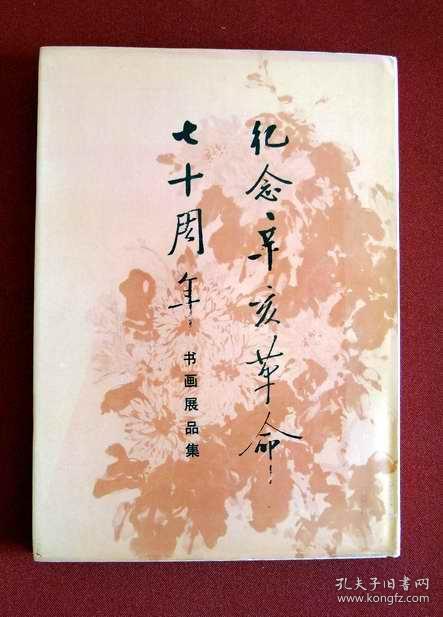 纪念辛亥革命
七十周年
书画展品集
孔夫子旧书网
www.kongfz.com